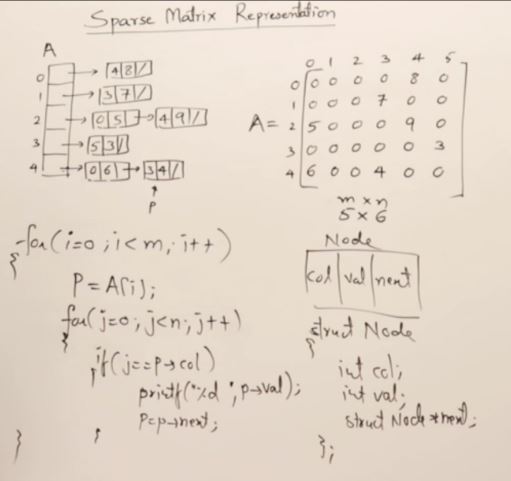 Sparse Matrix Representation
A
0 → 4 8 /
1 → 3 7 /
2 → 0 5 → 4 9 /
3 → 5 3 /
4 → 0 6 → 3 4 /
P
0 1 2 3 4 5
0 0 0 0 0 8 0
1 0 0 0 7 0 0
A = 2 5 0 0 0 9 0
3 0 0 0 0 0 3
4 6 0 0 4 0 0
m × n
5 × 6
Node
col val next
struct Node
{
int col;
int val;
struct Node *next;
};
for(i=0; i<m; i++)
{
P = A[i];
for(j=0; j<n; j++)
{
if(j==P→col)
printf("%d ", p→val);
P=p→next;
}
}